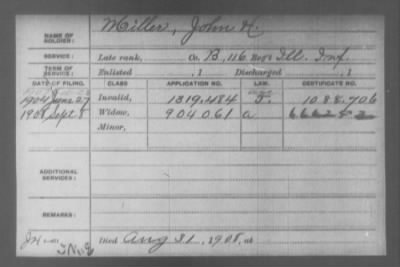 NAME OF SOLDIER: Miller, John H.
SERVICE: Late rank, Co. B, 116 Reg't Ill. Inf.
TERM OF SERVICE: Enlisted , 1 Discharged , 1
DATE OF FILING. CLASS APPLICATION NO. LAW. CERTIFICATE NO.
1904 June 27 Invalid, 1319.484 1088.706
1908 Sept 8 Widow, 904061 a
Minor,
ADDITIONAL SERVICES:
REMARKS:
Died Aug 31, 1908, at